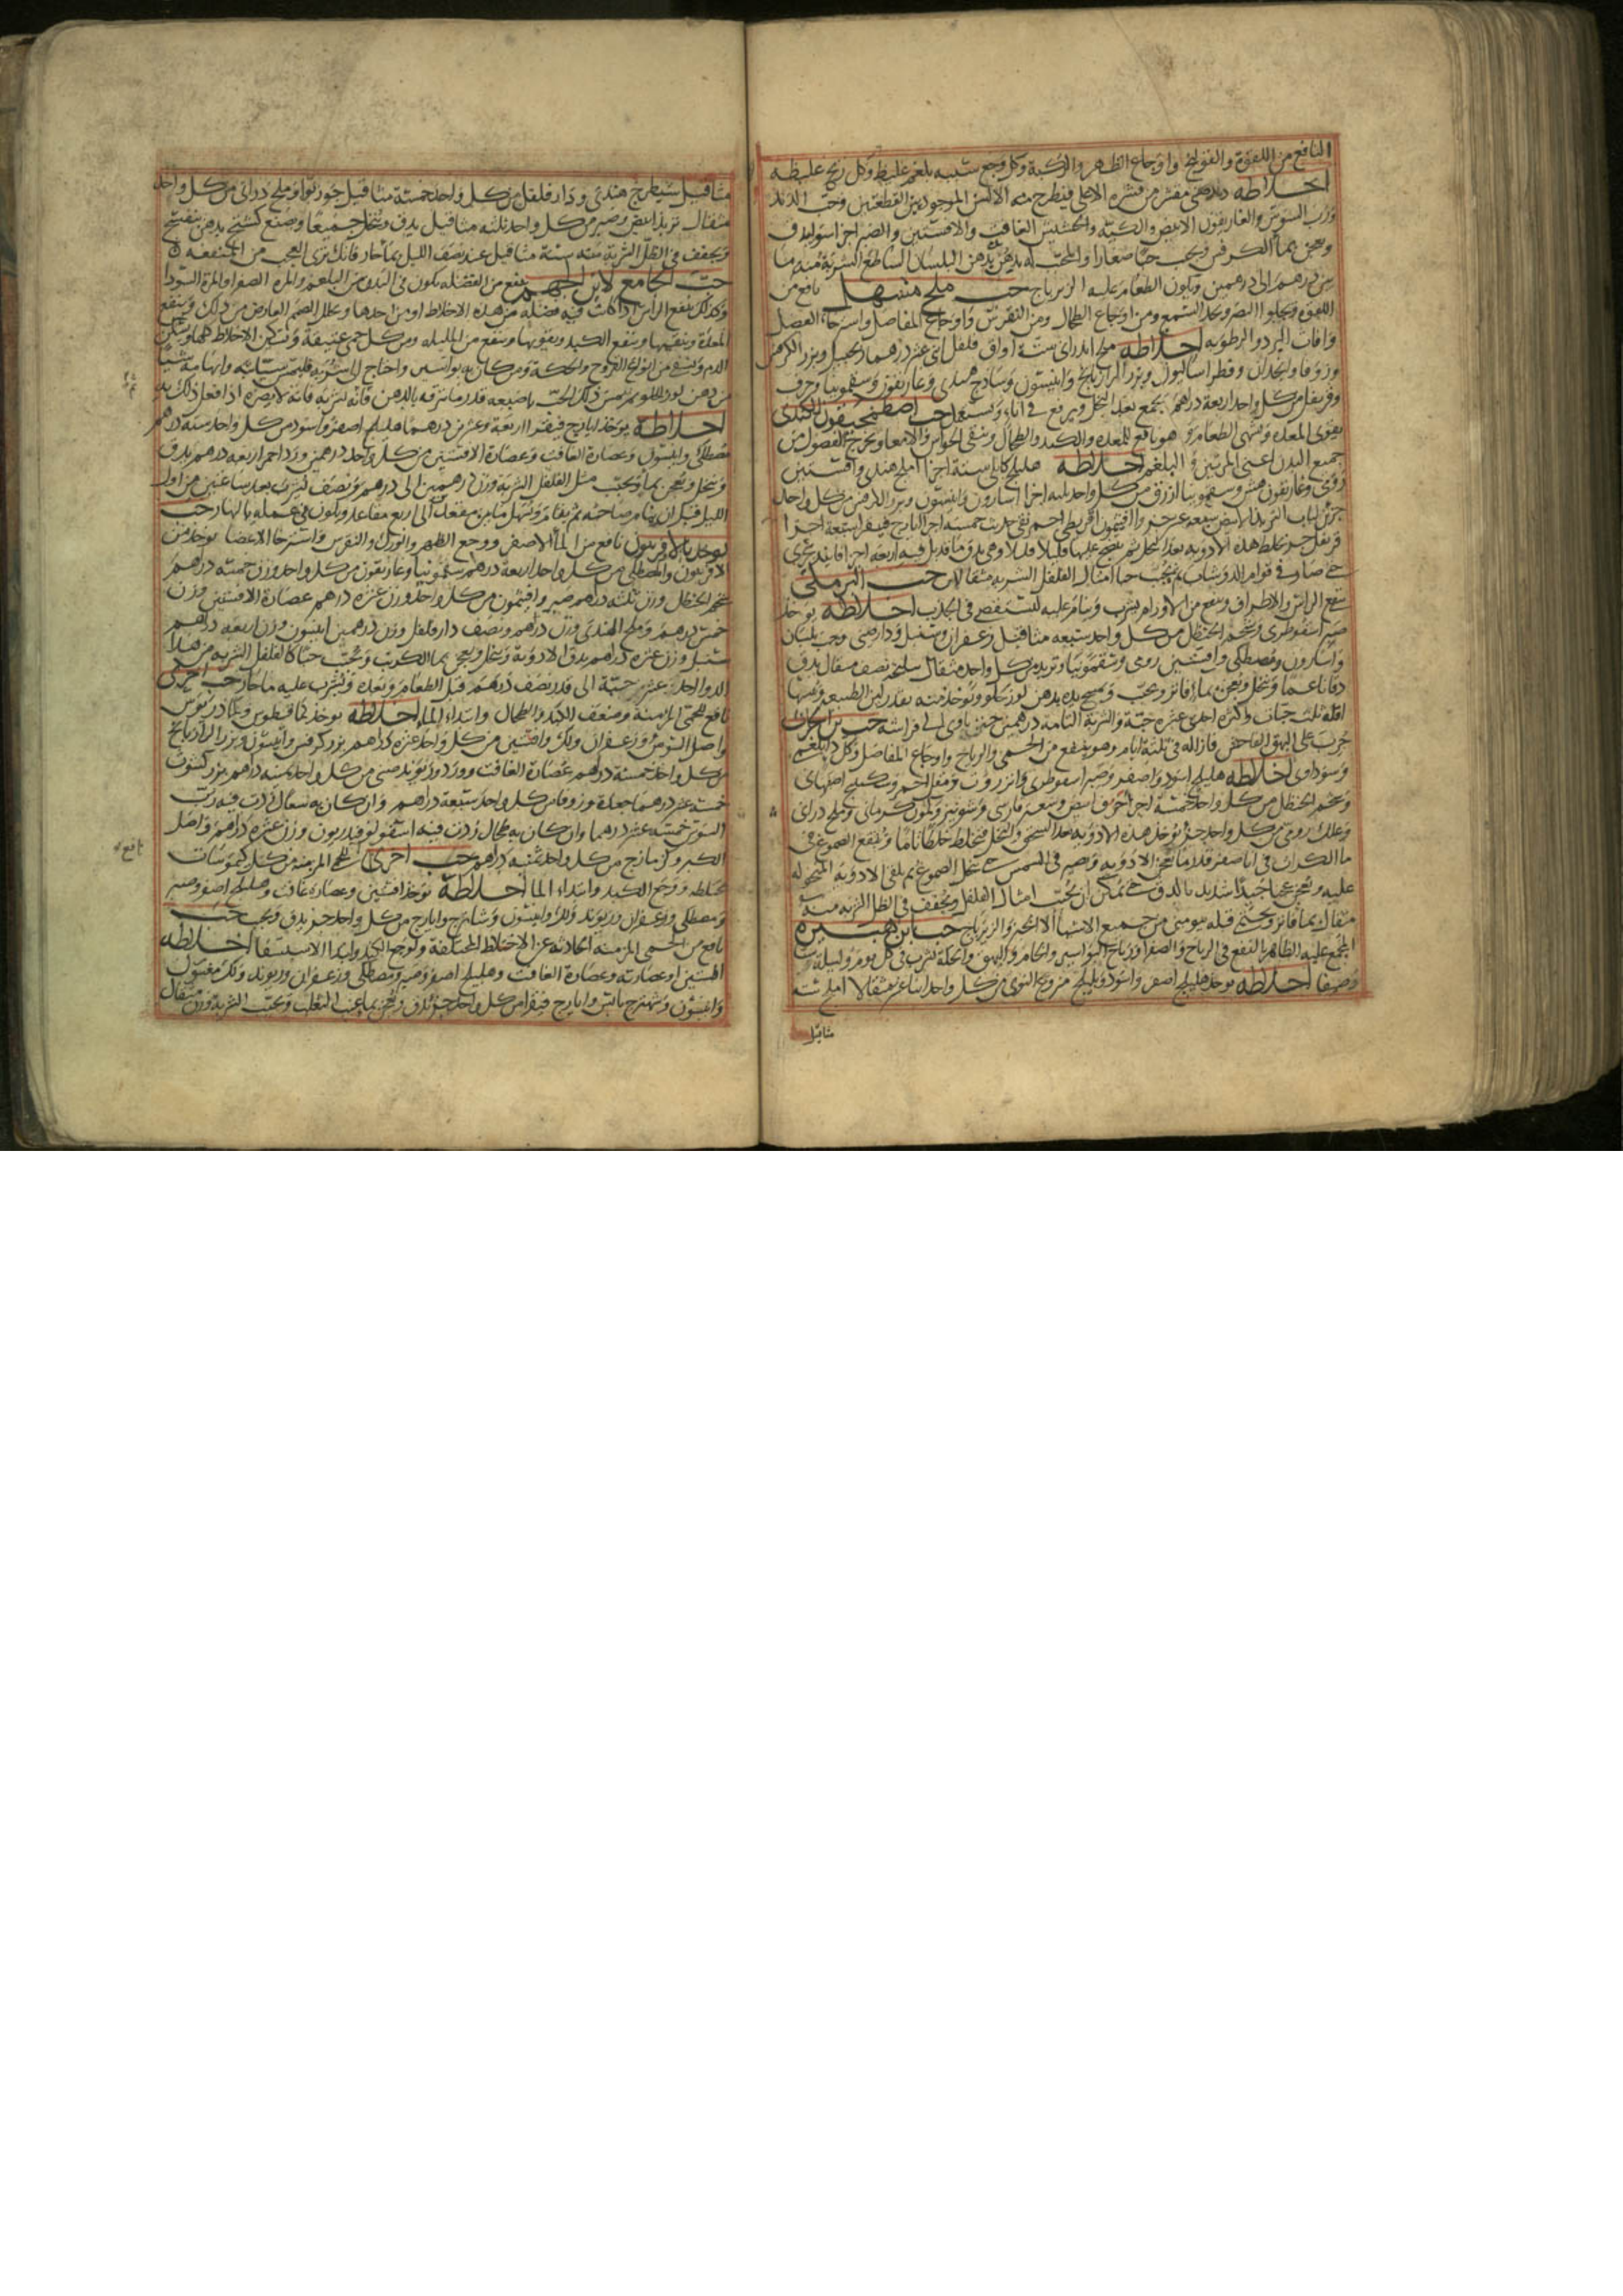 النافع من اللقوة والقولنج واوجاع الظهر والركبة وكل وجع سببه بلغم غليظ وكل ريح غليظة
اخلاطه مقشر من قشره الاعلى فيطرح منه الالسن الموجود بين القطعتين وحب
ورب السوس والغاريقون الابيض والكثيرا والحشيش الغافت والافسنتين والصبر اجزا سوا يدق
ويعجن بما الكرفس ويحبب حبا صغارا دهن البلسان الساطع الشربة منه ما
بين درهم الى درهمين ويكون الطعام عليه الزيرباج حب ملح مسهل نافع من
اللقوة ويجلوا البصر ويحد السمع ومن اوجاع الطحال ومن النقرس واوجاع المفاصل واسترخا العصل
وافات البرد والرطوبه اخلاطه ملح اندراني ستة اواق فلفل اثني عشر درهما زنجبيل وبزر الكرفس
وزوفا وانجدان وقطراساليون وبزر الرازيانج وانيسون وساذج هندي وغاريقون وسقمونيا وحرف
وقرنفل من كل واحد اربعة دراهم يجمع بعد النخل ويرفع في اناء ويستعمل حب اصطمخيقون للكندي
يقوي المعدة ويشهي الطعام وهو نافع للمعدة والكبد والطحال وينقي الحواس والامعا ويخرج الفضول من
جميع البدن اعني المرتين والبلغم اخلاطه هليلج كابلي ستة اجزا املج هندي وافسنتين
رومي وغاريقون هش وسقمونيا ازرق من كل واحد ثلثه اجزا اسارون وانيسون وبزر الكرفس من كل واحد
جزئن لباب التربد الابيض سبعة عشر جزا وافتيمون اقريطي احمر نقي حديث خمسة اجزا ايارج فيقرا سبعة اجزا
قرنفل جز يخلط هذه الادوية بعد النخل ثم يفتح عليها قليلا قليلا وهي يدق
حتى صار في قوام الدوشاب ثم يحبب حبا امثال الفلفل الشربه مثقالان حب البرمكي
ينفع الراس والاطراف وينفع من الاورام يشرب وينام عليه اخلاطه يوخذ
صبر اسقوطري وشحم الحنظل من كل واحد سبعه مثاقيل زعفران وسنبل ودارصيني وحب بلسان
واسارون ومصطكي وافسنتين رومي وسقمونيا وتربد من كل واحد مثقال سليخه نصف مثقال يدق
دقا ناعما وينخل ويعجن بما فاتر ويحبب ويمسح يده بدهن لوز حلو ويوخذ منه بقدر لين الطبيعه
اقله ثلث حبات واكثره احدى عشرة حبة والشربة التامة درهمين حين ياوي الى فراشه حب
جرب على البهق الفاحش فازاله في ثلثة ايام وهو ينفع من الحمى والرياح واوجاع المفاصل وكل دا بلغم
وسوداوي اخلاطه هليلج اسود واصفر وصبر اسقوطري وانزروت ومقل احمر وسكبينج اصفهاني
وشحم الحنظل من كل واحد خمسة اجزا خربق ابيض وسعتر فارسي وشونيز وكمون كرماني وملح دراني
وعلك رومي من كل واحد جزؤ يوخذ هذه الادويه بعد السحق والنخل فتخلط خلطا تاما وينقع الصموغ في
ما الكراث في انا صفر قدر ما يعجن الادويه ويصير في الشمس حتى ينحل الصموغ ثم يلقى الادوية المنخوله
عليه ويعجن عجنا جيدا شديد بالدق حتى يمكن ان يحبب امثال الفلفل ويجفف في الظل الشربه منه
مثقال بما فاتر ويحتمي قبله بيومين من جميع الاشيا الا الخبز والزيرباج حب ابن هبيرة
المجمع عليه الظاهر بالنفع في الرياح والصفرا ورياح البواسير والخام والبهق والحكة يشرب في كل يوم وليلة شتا
وصيفا اخلاطه يوخذ هليلج اصفر واسود وبليلج منزوع النوى من كل واحد اثنا عشر مثقالا املج ستة
مثاقيل
مثاقيل شيطرج هندي ودار فلفل من كل واحد خمسة مثاقيل جوز بوا وملح دراني من كل واحد
مثقال تربد ابيض وصبر من كل واحد ثلثه مثاقيل يدق وينخل جميعا ويصنع بدهن بنفسج
ويجفف في الظل الشربة منه ستة مثاقيل عند نصف الليل بما حار فانك ترى العجب من المنفعه
حب الجامع لابن الجهم ينفع من الفضله يكون في البدن من البلغم والمرة الصفرا والمرة السودا
وكذلك ينفع الراس اذا كانت فيه فضله من هذه الاخلاط او من احدها ويحلل الصمم العارض من ذلك وينفع
المعدة وينقيها وينفع الكبد ويقويها وينفع من المليله ومن كل حمى عتيقة ويسكن
الدم وينفع من انواع القروح والحكة ومن كان به بواسير واحتاج الى شربه شيئا
من دهن لوز اللوز ثم يمس ذلك الحب باصبعه قدر ما يترقه بالدهن فانه يشربه فانه لا يضره اذا فعل ذلك به
اخلاطه يوخذ ايارج فيقرا اربعة وعشرين درهما هليلج اصفر واسود من كل واحد ستة دراهم
مصطكي وانيسون وعصارة الغافت وعصارة الافسنتين من كل واحد درهمين ورد احمر اربعه دراهم يدق
وينخل ويعجن بما ويحبب مثل الفلفل الشربه وزن درهمين الى درهم ونصف يشرب بعد ساعتين من اول
الليل قبل ان ينام صاحبه ثم ينام ويسهل ما بين مقعد الى اربع مقاعد ويكون في عمله بالنهار حب
يوخذ بالافربيون نافع من الماالاصفر ووجع الظهر والورك والنقرس واسترخا الاعضا يوخذ من
الافربيون والمصطكي من كل واحد اربعة دراهم سقمونيا وغاريقون من كل واحد وزن خمسة دراهم
شحم الحنظل وزن ثلثه دراهم صبر وافتيمون من كل واحد وزن عشره دراهم عصارة الافسنتين وزن
خمس درهم وملح الهندي وزن دراهم ونصف دار فلفل وزن درهمين انيسون وزن اربعه دراهم
سنبل وزن عشره دراهم يدق الادوية وينخل ويعجن بما الكرنب ويحبب حبا كالفلفل الشربه من هذا
الدوا احد عشر حبة الى قدر نصف درهم قبل الطعام وبعده ويشرب عليه ما حار حب اخرى
نافع للحمى المزمنة وضعف الكبد والطحال وابتداء الماء اخلاطه يوخذ كمافيطوس وكمادريوس
واصل السوس وزعفران ولك وافسنتين من كل واحد عشره دراهم بزر كرفس وانيسون وبزر الرازيانج
من كل واحد خمسة دراهم عصارة الغافت وورد وريوند صيني من كل واحد ستة دراهم بزر كشوث
خمسة عشر درهما جعدة وزوفا من كل واحد سبعة دراهم وان كان به سعال زدت فيه رب
السوس خمسة عشر درهما وان كان به طحال زدت فيه اسقولوقندريون وزن عشره دراهم واصل
الكبر وكزمازج من كل واحد ثمنيه دراهم حب اخرى للحمى المزمنه من كل كيموسات
نافع
مختلطه ووجع الكبد وابتداء الما اخلاطه يوخذ افسنتين وعصاره غافت وهليلج اصفر وصبر
ومصطكي وزعفران وريوند ولك وانيسون وشاهترج وايارج من كل واحد جز يدق ويحبب حب
نافع من الحمى المزمنه الحادثه عن الاخلاط المختلفة ولوجع الكبد وابتدا الاستسقا اخلاطه
افسنتين اوعصارته وعصارة الغافت وهليلج اصفر وصبر ومصطكي وزعفران وريوند ولك مغسول
وانيسون وشهترج يابس وايارج فيقرا من كل واحد جز يدق ويعجن بما عنب الثعلب ويحبب الشربة وزن مثقال